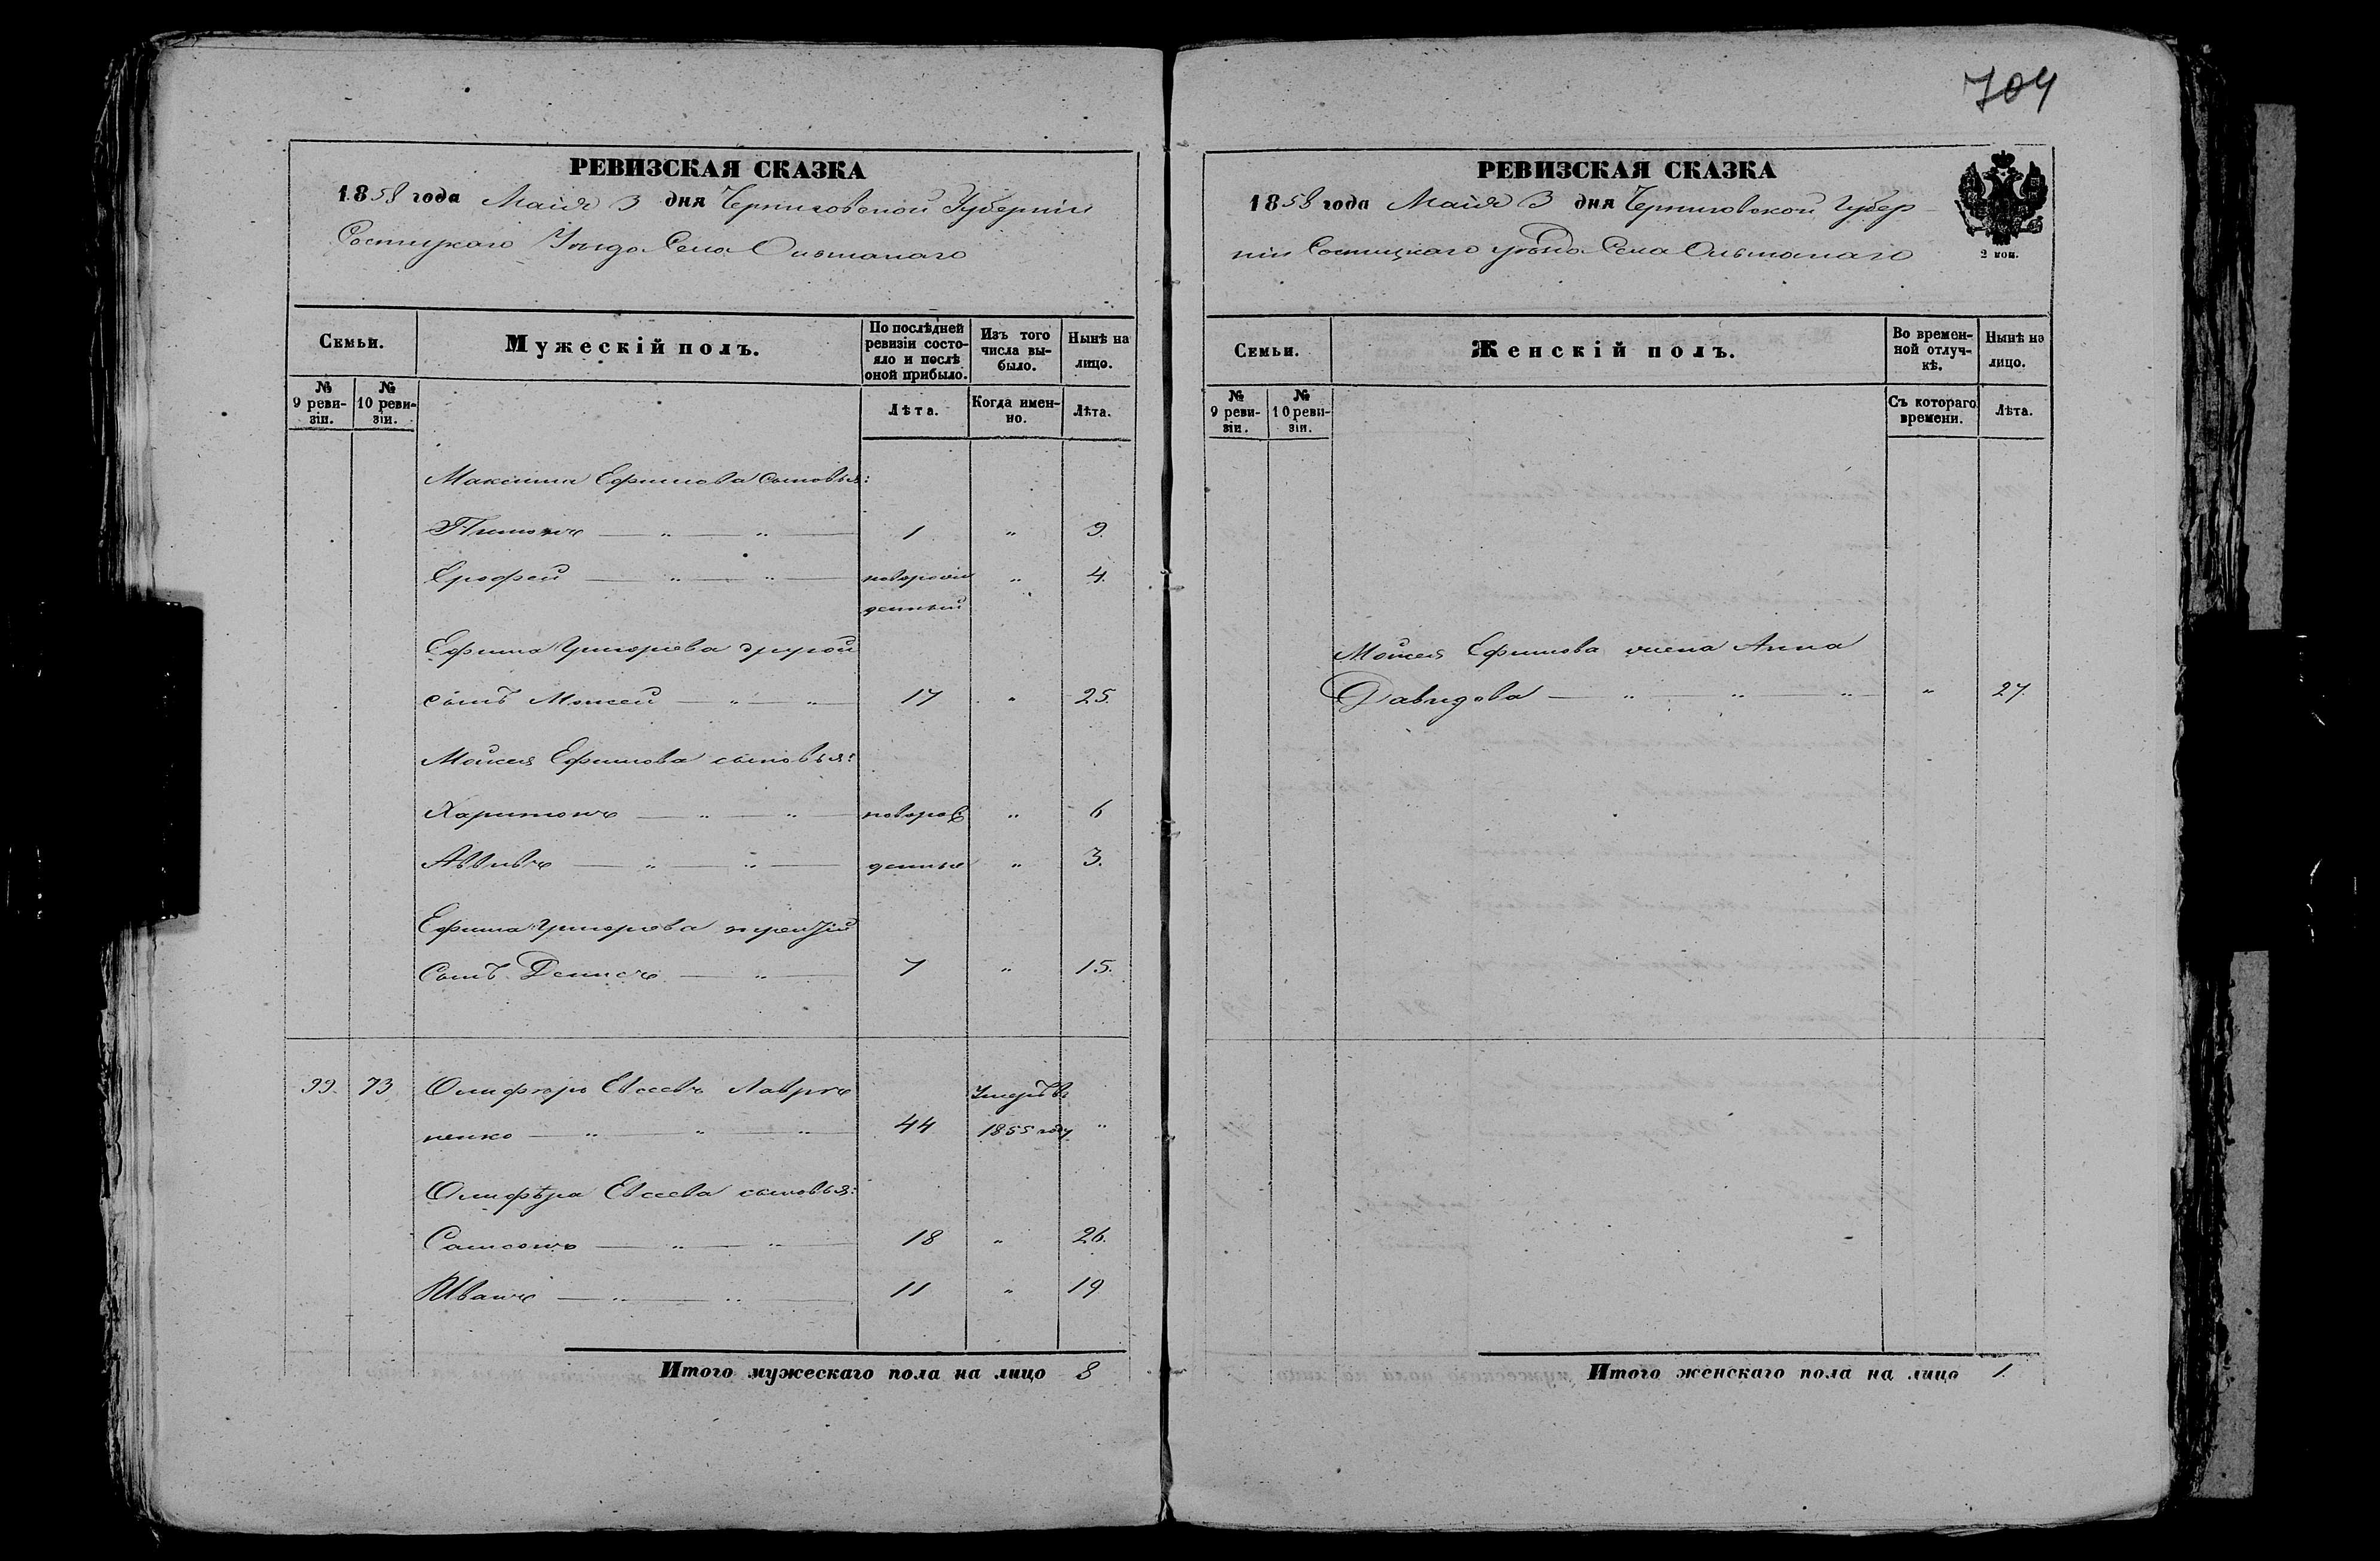 704
РЕВИЗСКАЯ СКАЗКА
1858 года Майя 3 дня Черниговской Губерніи
Сосницкаго Уезда Села Ольшанаго
Семьи.
Мужескій полъ.
По послѣдней ревизіи состояло и послѣ оной прибыло.
Изъ того числа выбыло.
Нынѣ на лицо.
№ 9 ревизіи.
№ 10 ревизіи.
Лѣта.
Когда именно.
Лѣта.
Максима Ефимова сыновья:
1 " 9.
Ерофей — " — " — новорож " 4.
денный
Ефима Григорьева другой
сынъ Моисей — " — " 17 " 25.
Моисея Ефимова сыновья:
Харитонъ — " — " — новорож " 6
— " — " — денные " 3.
Ефима Григорьева третій
Сынъ Денисъ — " — 7 " 15.
99. 73 Олиферъ Евсеевъ Лаврек Умеръ в
ненко — " — " — " 44 1855 году "
Олифера Евсеева сыновья:
Самсонъ — " — " — 18 " 26.
Иванъ — " — " — 11 " 19
Итого мужескаго пола на лицо 8
РЕВИЗСКАЯ СКАЗКА
1858 года Майя 3 дня Черниговской Губер-
ніи Сосницкаго уезда Села Ольшанаго
2 коп.
Семьи.
Женскій полъ.
Во временной отлучкѣ.
Нынѣ на лицо.
№ 9 ревизіи.
№ 10 ревизіи.
Съ котораго времени.
Лѣта.
Моисея Ефимова жена Анна
Давидова — " — " — " " 27.
Итого женскаго пола на лицо 1.